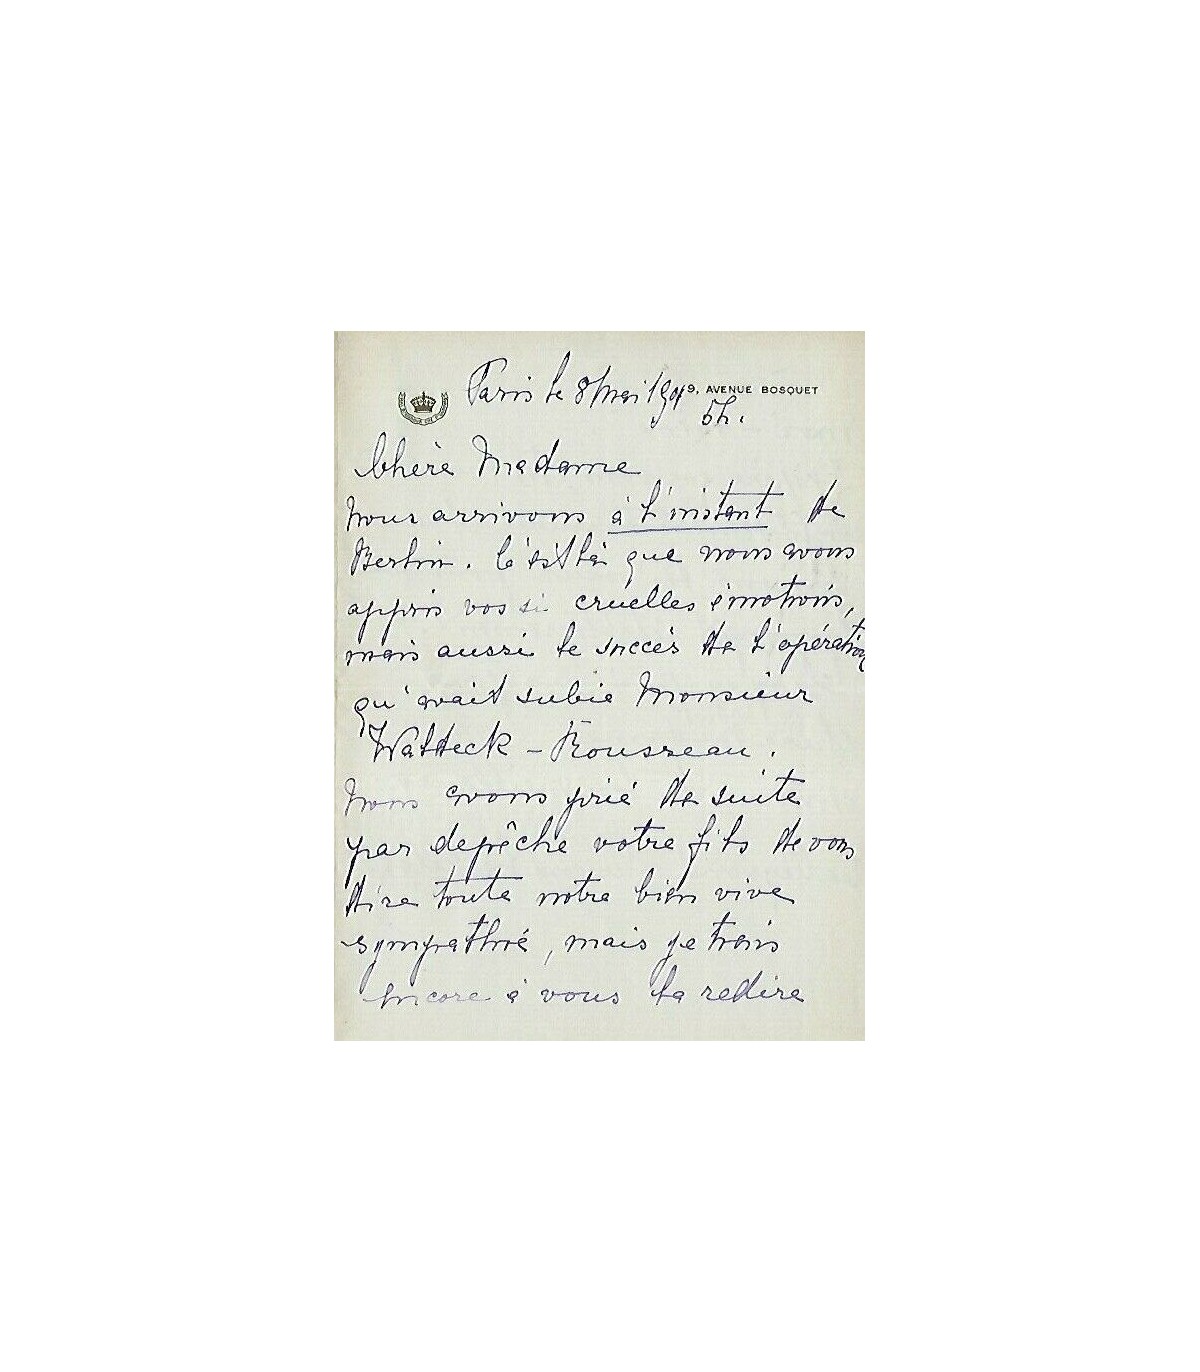 Paris le 8 Mai 1901
9, AVENUE BOSQUET
5h.
Chère Madame
Nous arrivons à l'instant de
Berlin. C'est là que nous avons
appris vos si cruelles émotions,
mais aussi le succès de l'opération
qu'avait subie Monsieur
Waldeck-Rousseau.
Nous avons prié de suite
par depêche votre fils de vous
dire toute notre bien vive
sympathie, mais je tiens
encore à vous la redire